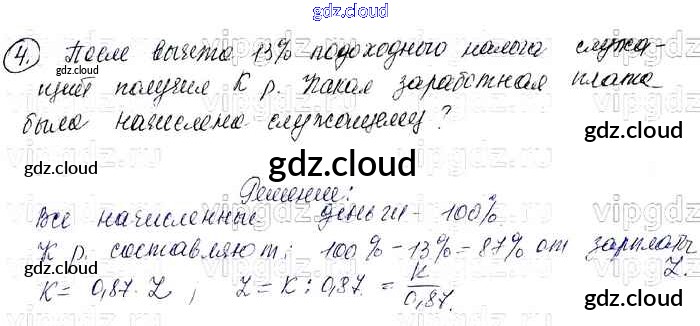 gdz.cloud
4. После вычета 13% подоходного налога служа-
щий получил К р. Какая заработная плата
была начислена служащему?
gdz.cloud
gdz.cloud
gdz.cloud
Решение:
Все начисленные деньги - 100%.
К р. составляют: 100% - 13% = 87% от зарплаты
Z.
К = 0,87 · Z ; Z = К : 0,87 = К/0,87.
gdz.cloud
gdz.cloud
gdz.cloud